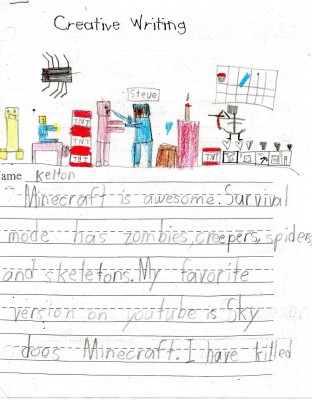 Creative Writing
Steve
TNT
TNT
TNT
TNT
ame Kelton
Minecraft is awesome. Survival
mode has zombies, creepers, spiders
and skeletons. My favorite
version on youtube is Sky
doas Minecraft. I have killed